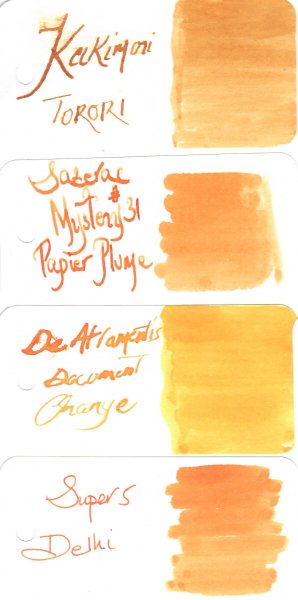 Kakimori
TORORI
Sazerac
#
Mystery 31
Papier Plume
De Atramentis
Document
Orange
Super 5
Delhi